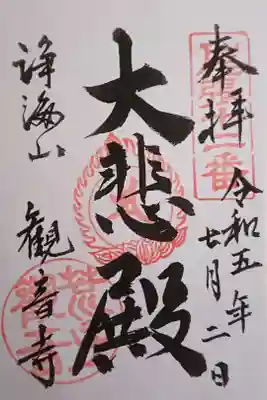 奉拝
令和五年
七月二日
大悲殿
浄海山
観音寺